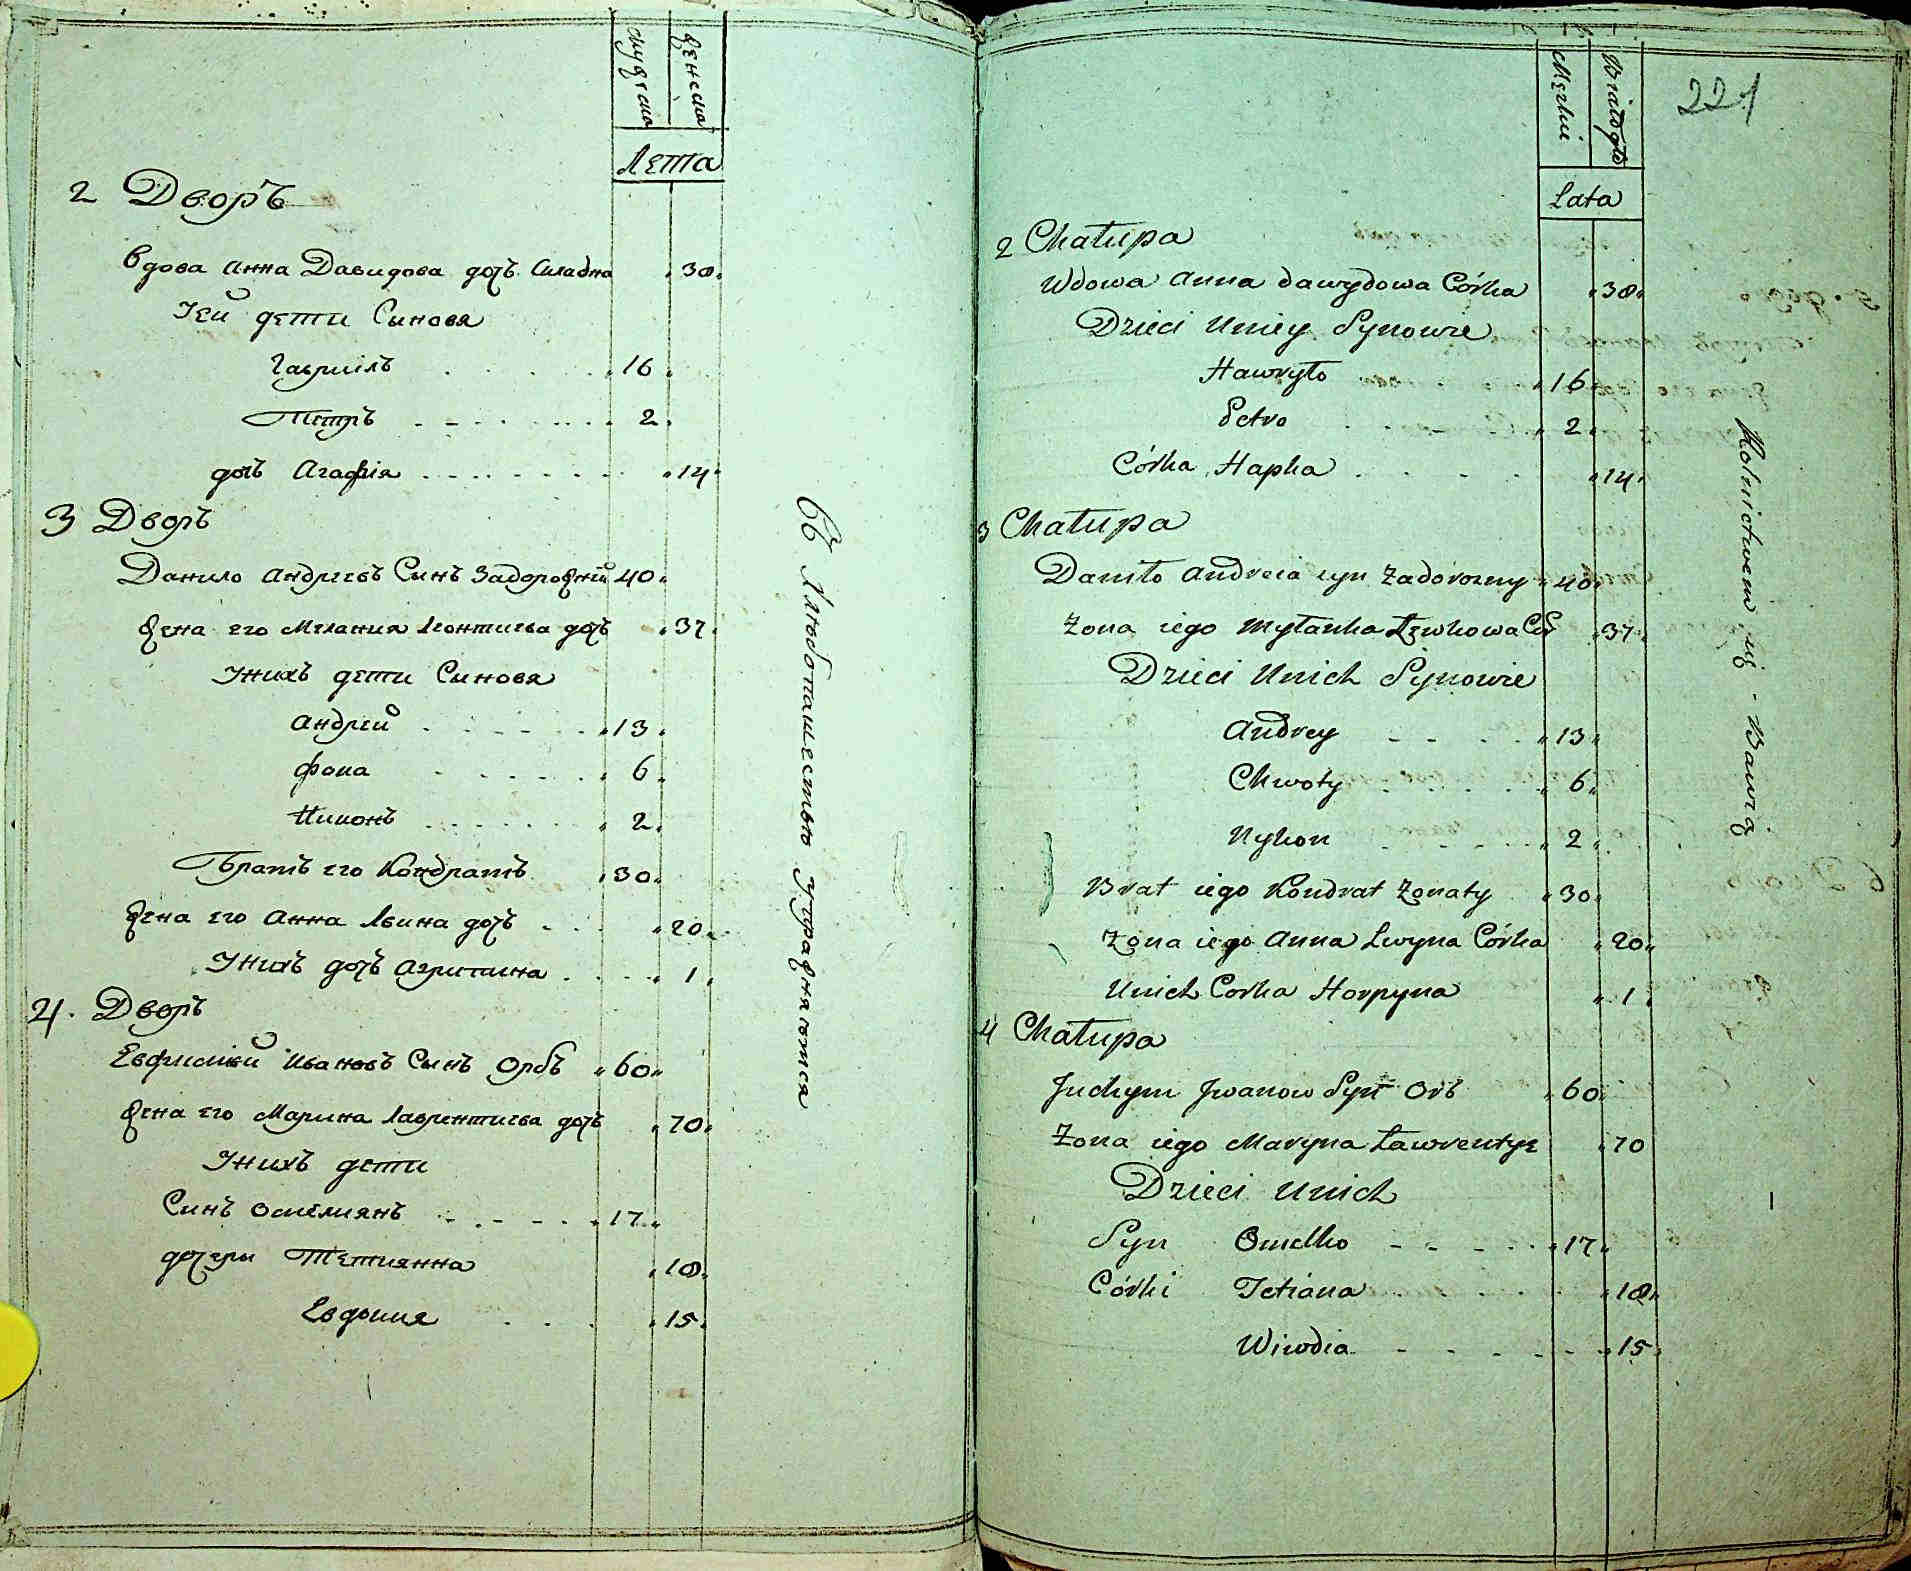 мужеска
женска
Лета
2 Дворъ
Вдова Анна Давидова дочь 38
Уей дети Сыновя
Гавриилъ 16
Петръ 2
дочь Агафія 14
3 Дворъ
Данило Андреевъ Сынъ Задорожній 40
Жена его Мелания Леонтиева дочь 37
Унихъ дети Сыновя
Андрей 13
Фока 6
Никонъ 2
Братъ его Кондратъ 30
Жена его Анна Лвина дочь 20
Унихъ дочь Агрипина 1
4. Дворъ
Евфимий Ивановъ Сынъ Орбъ 60
Жена его Марина Лаврентиева дочь 70
Унихъ дети
Синъ Омелиянъ 17
дочери Тетиянна 18
Евдокия 15
Хлебопашествомъ упражняются
221
Męzkie
Lata
2 Chałupa
Wdowa Anna Dawydowa Córka 38
Dzieci Uniey Synowie
Hawryło 16
Petro 2
Córka Hapka 14
3 Chałupa
Daniło Andreia syn Zadorozny 40
Zona iego Myłanka Łewkowa Cór 37
Dzieci Unich Synowie
Andrey 13
Chwoty 6
Nykon 2
Brat iego Kondrat Zonaty 30
Zona iego Anna Lwyna Córka 20
Unich Corka Horpyna 1
4 Chałupa
Juchym Jwanow Syn Orb 60
Zona iego Maryna Ławrentye 70
Dzieci Unich
Syn Omelko 17
Córki Tetiana 18
Wiwdia 15
Rolnictwem się - Bawią